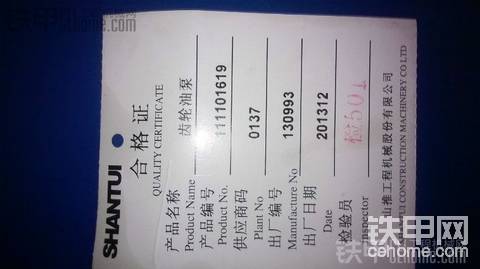 SHANTUI
合格证
QUALITY CERTIFICATE
产品名称 齿轮油泵
Product Name
产品编号 111101619
Product No.
供应商码 0137
Plant No
出厂编号 130993
Manufacture No
出厂日期 201312
Date
检验员 检501
Inspector
山推工程机械股份有限公司
SHANTUI CONSTRUCTION MACHINERY CO LTD
铁甲网
cehome.com